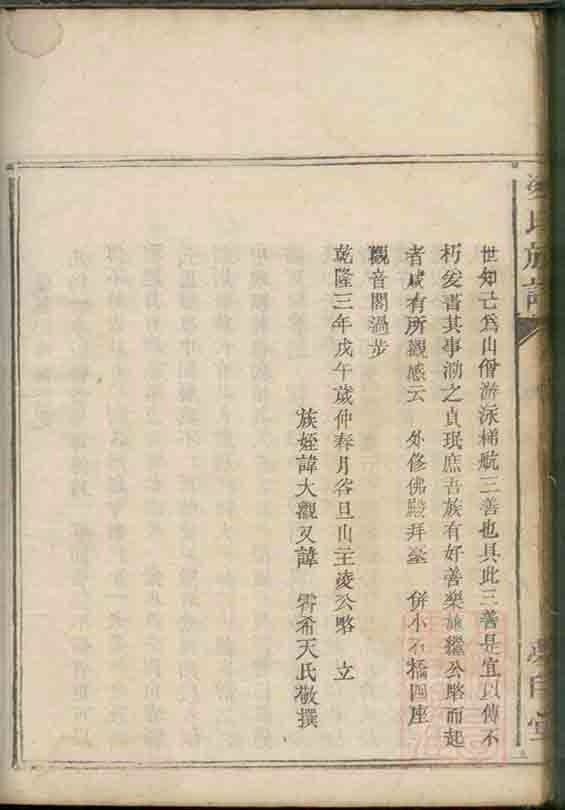 氏族譜
世知己為山僧游泳梯航三善也具此三善是宜以傳不
朽爰書其事泐之貞珉庶吾族有好善樂施繼公略而起
者咸有所觀感云　外修佛殿拜臺　併小石橋四座
觀音閣過步
乾隆三年戊午歲仲春月谷旦山主淩公略　立
族姪諱大觀又諱　霄希天氏敬撰